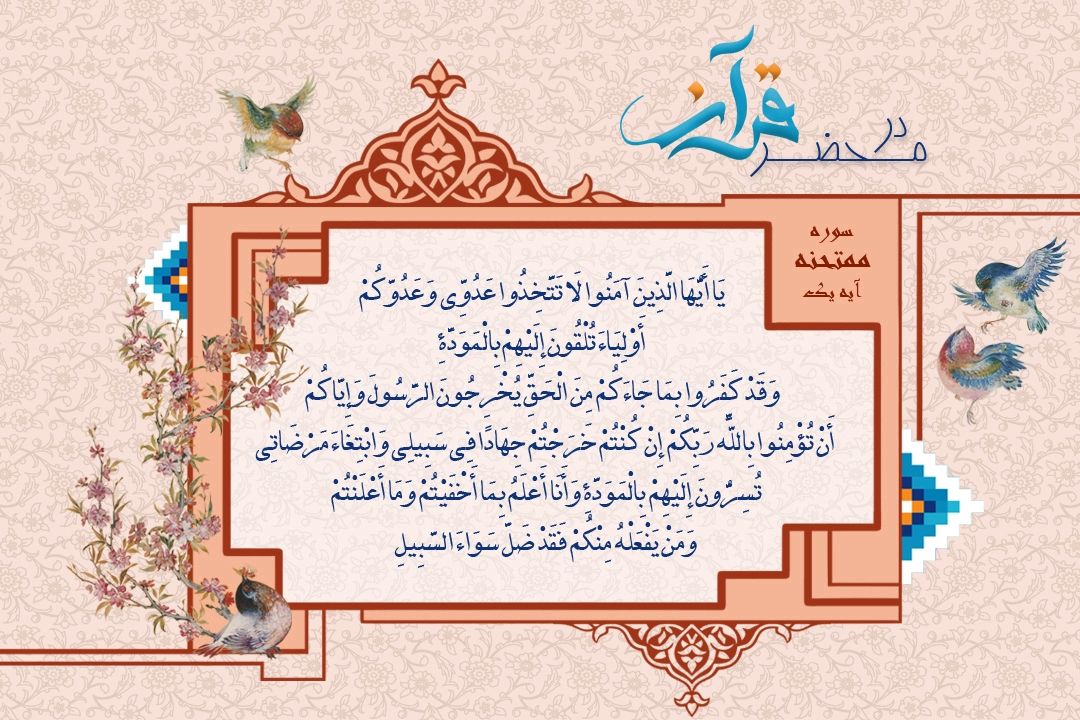 در محضر قرآن
سوره
ممتحنه
آیه یک
يَا أَيُّهَا الَّذِينَ آمَنُوا لَا تَتَّخِذُوا عَدُوِّي وَعَدُوَّكُمْ
أَوْلِيَاءَ تُلْقُونَ إِلَيْهِمْ بِالْمَوَدَّةِ
وَقَدْ كَفَرُوا بِمَا جَاءَكُمْ مِنَ الْحَقِّ يُخْرِجُونَ الرَّسُولَ وَإِيَّاكُمْ
أَنْ تُؤْمِنُوا بِاللَّهِ رَبِّكُمْ إِنْ كُنْتُمْ خَرَجْتُمْ جِهَادًا فِي سَبِيلِي وَابْتِغَاءَ مَرْضَاتِي
تُسِرُّونَ إِلَيْهِمْ بِالْمَوَدَّةِ وَأَنَا أَعْلَمُ بِمَا أَخْفَيْتُمْ وَمَا أَعْلَنْتُمْ
وَمَنْ يَفْعَلْهُ مِنْكُمْ فَقَدْ ضَلَّ سَوَاءَ السَّبِيلِ